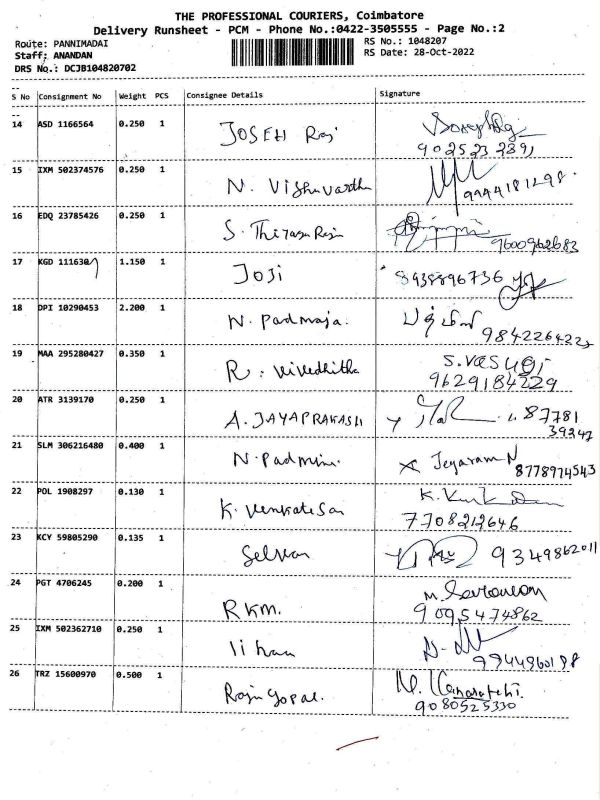 THE PROFESSIONAL COURIERS, Coimbatore
Delivery Runsheet - PCM - Phone No.:0422-3505555 - Page No.:2
Route: PANNIMADAI RS No.: 1048207
Staff: ANANDAN RS Date: 28-Oct-2022
DRS No.: DCJB104820702
S No Consignment No Weight PCS Consignee Details Signature
14 ASD 1166564 0.250 1 JOSEH Raj
15 IXM 502374576 0.250 1 N. Vishnuvardhn
9944181298
16 EDQ 23785426 0.250 1
9600962683
17 KGD 111630 1.150 1 JOJI 8938896736
18 DPI 10290453 2.200 1 N. Padmaja.
19 MAA 295280427 0.350 1 R. Nivedhitha S.VASUGI
9629184229
20 ATR 3139170 0.250 1 A. JAYAPRAKASH 87781
39247
21 SLM 306216480 0.400 1 N. Padmini Jeyaram N
8778974543
22 POL 1908297 0.130 1 K. Venkatesan
7708212646
23 KCY 59805290 0.135 1 Selvan 9349862011
24 PGT 4706245 0.200 1 RKM.
9095474862
25 IXM 502362710 0.250 1
26 TRZ 15600970 0.500 1 Rajugopal.
9080525330